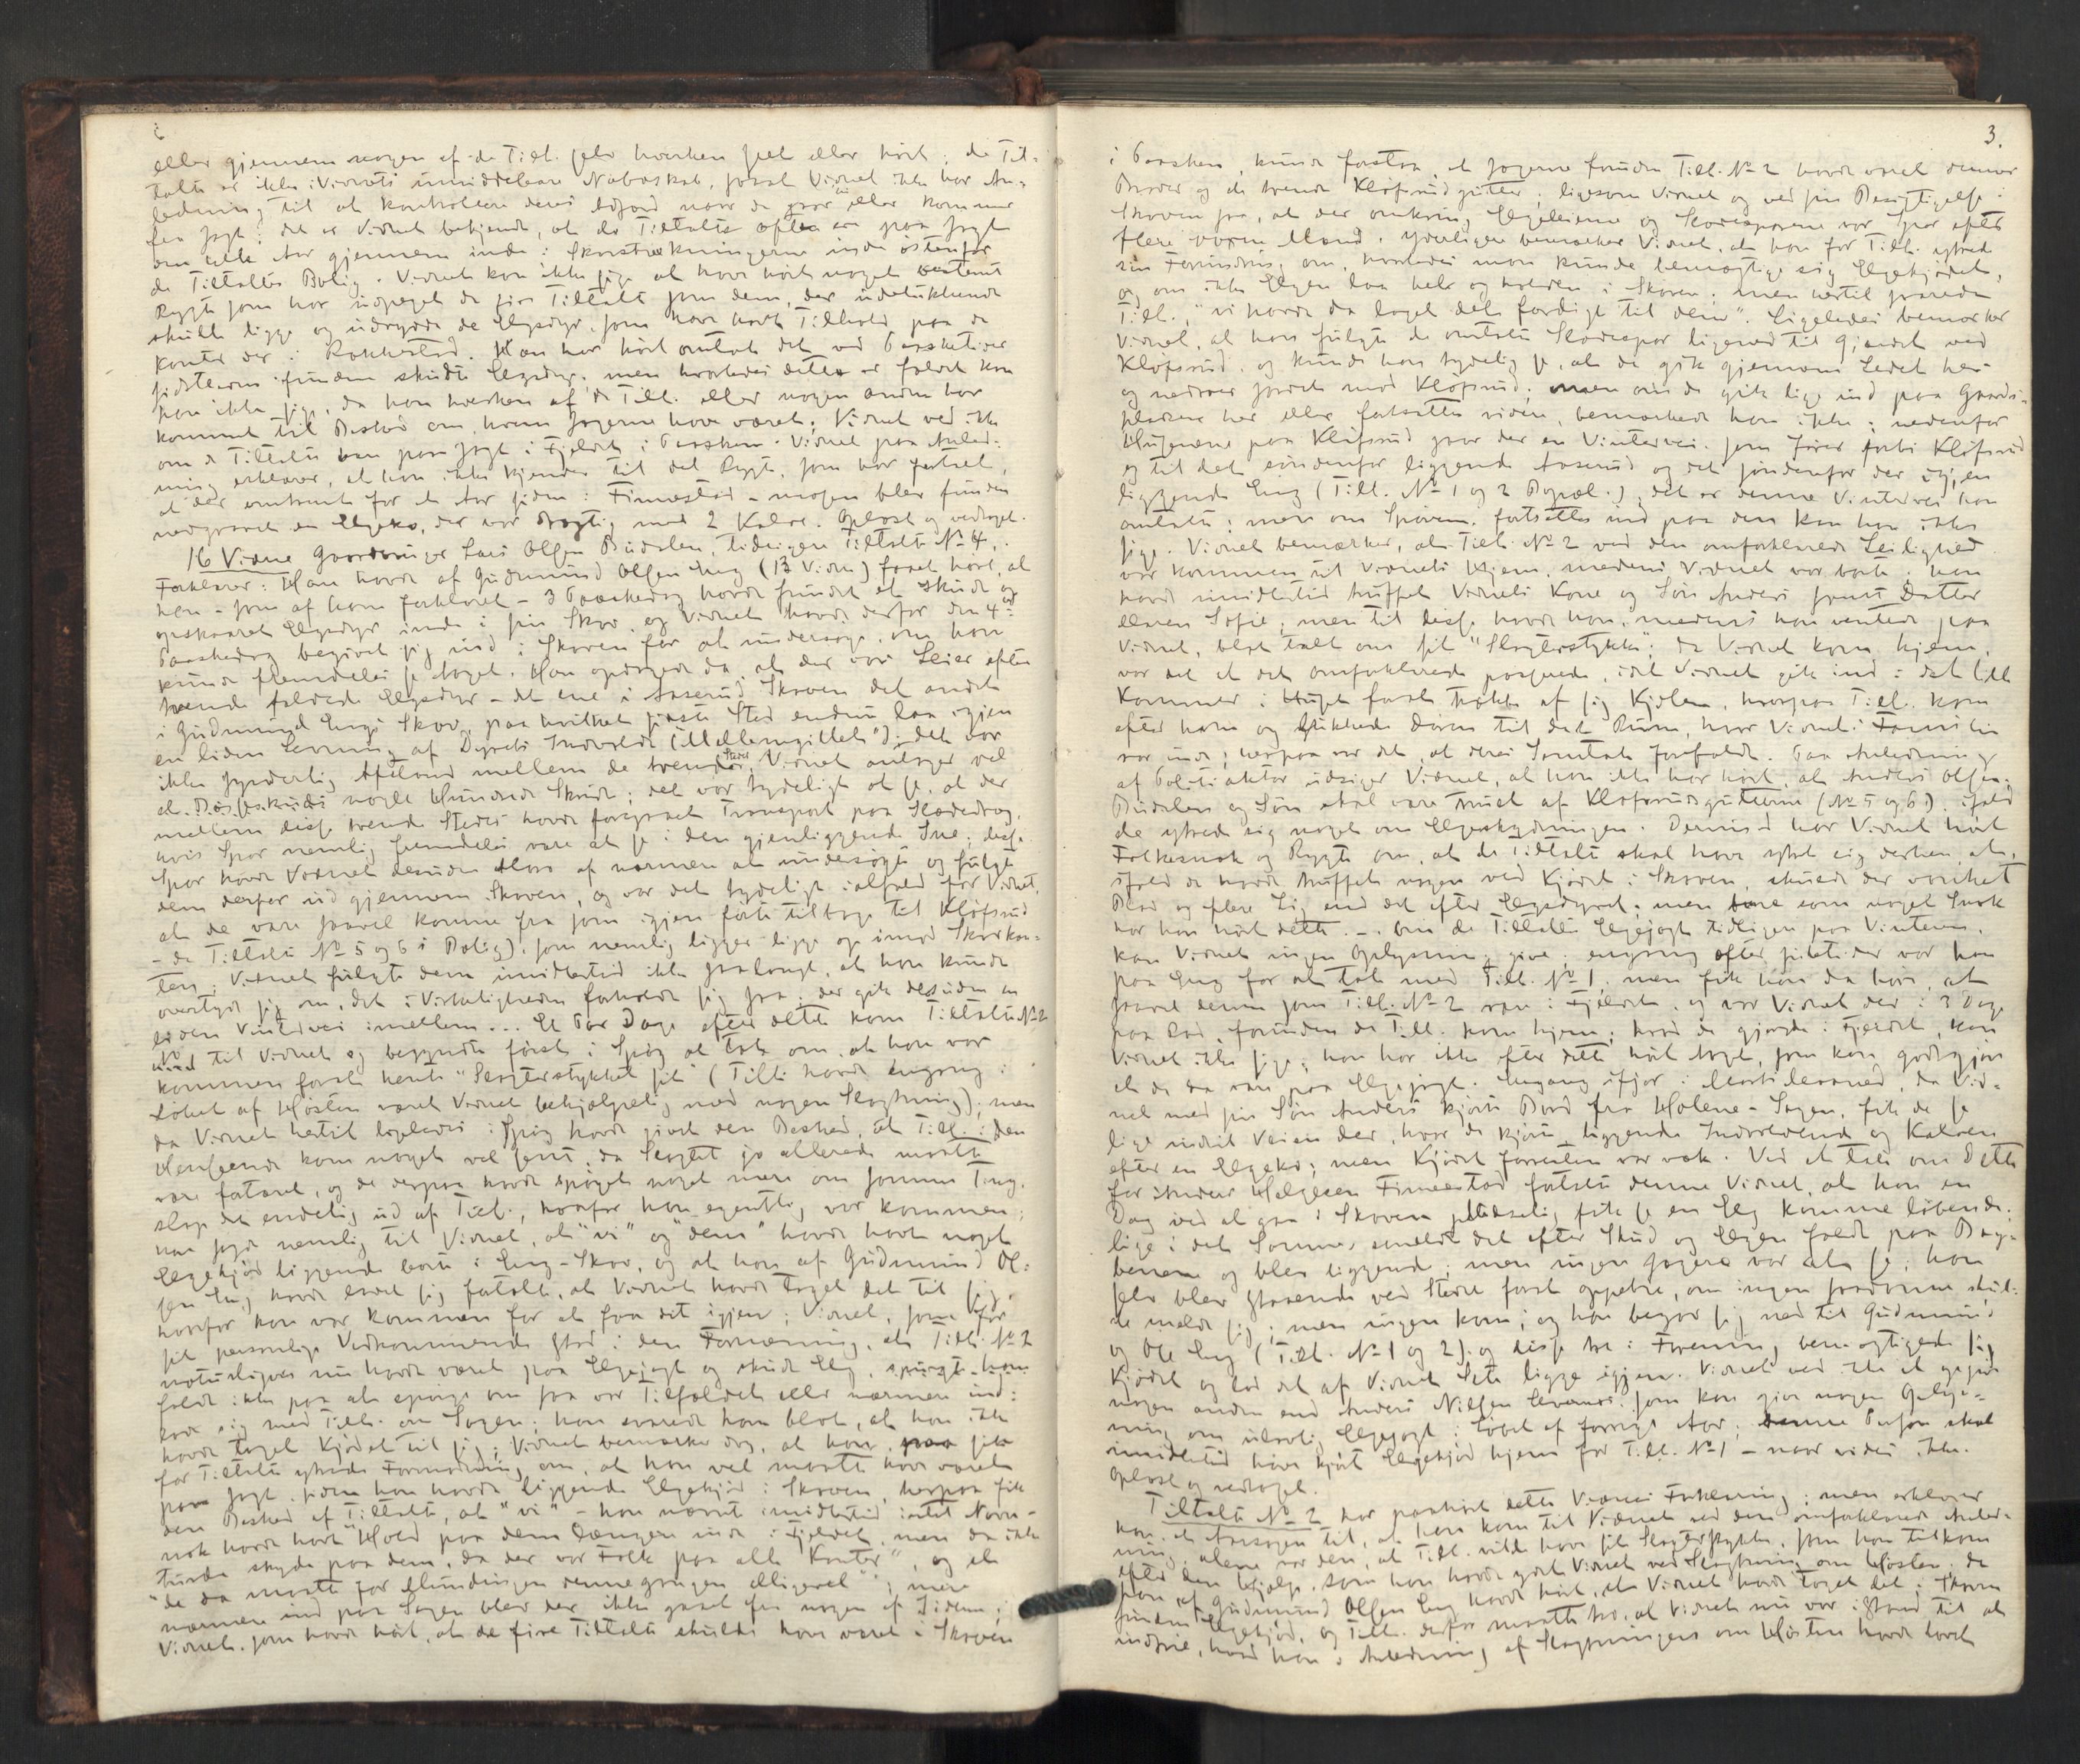 eller gjennem nogen af de Till. selv hverken seet eller hört; de Til-
talte er ikke i Vidnets umiddelbare Naboskab, saaat Vidnet ikke har An-
ledning til at kontrollere deres Udfærd naar de gaar til eller kommer
fra Jagt; det er Vidnet bekjendt, at de Tiltalte ofte er paa Jagt
om hele Aar gjennem inde i Skovstrækningerne inde östenfor
de Tiltaltes Bolig. Vidnet kan ikke sige at have hört noget bestemt
Rygte som har udpeget de fire Tiltalte som dem, der udelukkende
skulle ligge og udrydde de Elgsdyr, som have havt Tilhold paa de
Kanter der i Rakkestad. Han har hört omtale det ved Paasketider
sidstleden fundne skudte Elgsdyr, men hvorledes dette er fældet kan
han ikke sige, da han hverken af de Till. eller nogen anden har
kommet til Besked om, hvem Jægerne have været; Vidnet ved ikke
om de Tiltalte var paa Jagt i Fjeldet i Paasken. Vidnet paa Anled-
ning erklærer, at han ikke kjender til det Rygte, som har fortalt,
at der omtrent for et Aar siden i Finnestad-mosen blev funden
nedgravet en Elgsko, der var drægtig med 2 Kalve. Oplæst og vedtaget.
16 Vidne Gaardbruger Lars Olsen Budalen, tidligere Tiltalte No 4,
Forklarer: Han havde af Gudmund Olsen Eng (13 Vidne) faaet höre, at
han - som af ham forklaret - 3 Paaskedag havde fundet et skudt og
opskaaret Elgsdyr inde i sin Skov, og Vidnet havde derfor den 4de
Paaskedag begivet sig ind i Skoven for at undersöge, om han
kunde fremdeles se noget. Han opdagede da, at der var Leier efter
tvende fældede Elgsdyr - det ene i Aaserud Skoven det andet
i Gudmund Engs Skov, paa hvilket sidste Sted endnu laa igjen
en liden Levning af Dyrets Indvolde (Mellemgillet"); det var
ikke synderlig Afstand mellem de tvende Steder, Vidnet antager vel
et Bösseskuds nogle Hundrede Skridt; det var tydeligt at se, at der
mellem disse tvende Steder havde foregaaet Transport paa Slædedrag,
hvis Spor nemlig fremdeles vare at se i den gjenliggende Sne; disse
Spor havde Vidnet desuden Moro af nærmere at undersöge og fulgte
dem derfor ud gjennem Skoven, og var det tydeligt ialfald for Vidnet,
at de vare saavel komme fra som igjen förte tilbage til Klöfsrud
- de Tiltalte No 5 og 6 s Bolig), som nemlig ligger lige op imod Skovkan-
ten; Vidnet fulgte dem imidlertid ikke saalangt, at han kunde
overtyde sig om, det i Virkeligheden forholdt sig saa; der gik desuden en
liden Vintervei imellem... Et Par Dage efter dette kom Tiltalte No 2
ned til Vidnet og begyndte först i Spög at tale om, at han var
kommen forat hente "Slagterstykket sit" (Till. havde engang i
Löbet af Hösten været Vidnet behjælpelig med nogen Slagtning); men
da Vidnet hertil ligeledes i Spög havde givet den Besked, at Till. i den
Henseende kom noget vel sent, da Slagtet jo allerede maatte
være fortæret, og de derpaa havde spöget noget mere om samme Ting,
slap det endelig ud af Till., hvorfor han egentlig var kommen;
han sagde nemlig til Vidnet, at "vi" og "dem" havde havt noget
Elgekjöd liggende borte i Eng-Skov, og at han af Gudmund Ol-
sen Eng havde ladet sig fortalt, at Vidnet havde taget det til sig,
hvorfor han var kommen for at faa det igjen; Vidnet, som for
sit personlige Vedkommende stod i den Formening, at Till. No 2
naturligvis nu havde været paa Elgejagt og skudt Elg, spurgte ham
faldt ikke paa at spörge om saa var Tilfældet eller nærmere ind-
lade sig med Till. om Sagen; han svarede ham blot, at han ikke
havde taget Kjödet til sig; Vidnet bemærker dog, at han
for Tiltalte ytrede Formodning om, at han vel maatte have været
paa Jagt, siden han havde liggende Elgekjöd i Skoven, herpaa fik
den Besked af Tiltalte, at "vi" - han nævnte imidlertid intet Navn -
nok havde havt "Hold paa dem længere inde i Fjeldet, men da ikke
turde skyde paa dem, da der var Folk paa alle Kanter", og at
"de da maatte for Mundingen dennegangen alligevel"; mere
nærmere ind paa Sagen blev der ikke gaaet fra nogen af Siderne;
Vidnet, som havde hört, at de fire Tiltalte skulde have været i Skoven
3.
i Paasken, kunde forstaa, at Jægerne foruden Till. No 2 havde været dennes
Broder og de tvende Klöfsrudgutter, ligesom Vidnet og ved sin Besigtigelse i
Skoven saa, at der omkring Elgeleierne og Slædesporene var Spor efter
flere voxne Mænd. Yderligere bemærker Vidnet, at han for Till. ytred
sin Forundring om, hvorledes man kunde bemægtige sig Elgekjödet,
og om ikke Elgen laa hele og holden i Skoven; men hertil svarede
Till., "vi havde da laget det færdigt til dem". Ligeledes bemærker
Vidnet, at han fulgte de omtalte Slædespor ligened til Gjærdet ved
Klöfsrud, og kunde han tydelig se, at de gik gjennem Ledet her
og nedover Jordet mod Klöfsrud; men om de gik lige ind paa Gaards-
pladsen her eller fortsatte videre, bemærkede han ikke; nedenfor
Husene paa Klöfsrud gaar der en Vintervei, som förer forbi Klöfsrud
og til det söndenfor liggende Aaserud og det söndenfor der igjen
liggende Eng (Till. No 1 og 2 Bopæl.), det er denne Vintervei han
omtalte; men om Sporene fortsattes ind paa den kan han ikke
sige. Vidnet bemærker, at Till. No 2 ved den omforklarede Leilighed
var kommen til Vidnets Hjem, medens Vidnet var borte; han
havde imidlertid truffet Vidnets Kone og Sön Anders samt Datter
Maren Sofie; men til disse havde han, medens han ventede paa
Vidnet, blot talt om sit "Slagterstykke"; da Vidnet kom hjem,
var det at det omforklarede passerede, idet Vidnet gik ind i det lille
Kammer i Huset forat trække af sig Kjolen, hvorpaa Till. kom
efter ham og lukkede Dören til det Rum, hvor Vidnets Familie
var inde; herpaa var det, at deres Samtale forefaldt. Paa Anledning
af Politiaktor udsiger Vidnet, at han ikke har hört, at Anders Olsen
Budalen og Sön skal være truet af Klöfsrudgutterne (No 5 og 6), ifald
de ytrede sig noget om Elgeskydningen. Derimod har Vidnet hört
Folkesnak og Rygte om, at de Tiltalte skal have ytret sig derhen, at,
ifald de havde truffet nogen ved Kjödet i Skoven, skulde der vanket
Blod og flere Lig end det efter Elgsdyret; men bare som noget Snak
har han hört dette. -. Om de Tiltaltes Elgejagt tidligere paa Vinteren,
kan Vidnet ingen Oplysning give; engang efter Juletider var han
paa Eng for at tale med Till. No 1, men fik han da höre, at
saavel denne som Till. No 2 var i Fjeldet, og var Vidnet der i 3 Dage
paa Rad, forinden de Till. kom hjem; hvad de gjorde i Fjeldet, kan
Vidnet ikke sige; han har ikke efter dette hört noget, som kan godtgjöre
at de da var paa Elgejagt. Engang ifjor i Marts Maaned, da Vid-
net med sin Sön Anders kjörte Bord fra Holene-Sagen, fik de se
lige indtil Veien der, hvor de kjörte, liggende Indvoldene og Kalven
efter en Elgeko; men Kjödet forresten var væk. Ved at tale om dette
for Anders Helgesen Finnestad fortalte denne Vidnet, at han en
Dag ved at gaa i Skoven pludselig fik se en Elg komme löbende;
lige i det Samme smeldte det efter Skud og Elgen faldt paa Bag-
benene og blev liggende; men ingen Jægere var at se; han
selv blev staaende ved Stedet forat oppebie, om ingen saadanne skul-
de melde sig; men ingen kom; og han begav sig ned til Gudmund
og Ole Eng (Till. No 1 og 2) og disse tre i Forening bemægtigede sig
Kjödet og lod det af Vidnet Sete ligge igjen. Vidnet ved ikke at opgive
nogen anden end Anders Nilsen Levernes, som kan give nogen Oplys-
ning om ulovlig Elgejagt i Löbet af forrige Aar; denne Person skal
imidlertid have kjört Elgekjöd hjem for Till. No 1 - naar vides ikke.
Oplæst og vedtaget.
Tiltalte No 2 har paahört dette Vidnes Forklaring; men erklærer
han, at Aarsagen til, at han kom til Vidnet ved den omforklarede Anled-
ning, alene var den, at Till. vilde have sit Slagterstykke, som han tilkom
efter den Hjælp, som han havde ydet Vidnet ved Slagtning om Hösten; da
han af Gudmund Olsen Eng havde hört, at Vidnet havde taget det i Skoven
fundne Elgekjöd, og Till. derfor maatte tro, at Vidnet nu var istand til at
indfrie, hvad han i Anledning af Slagtningen om Hösten havde lovet